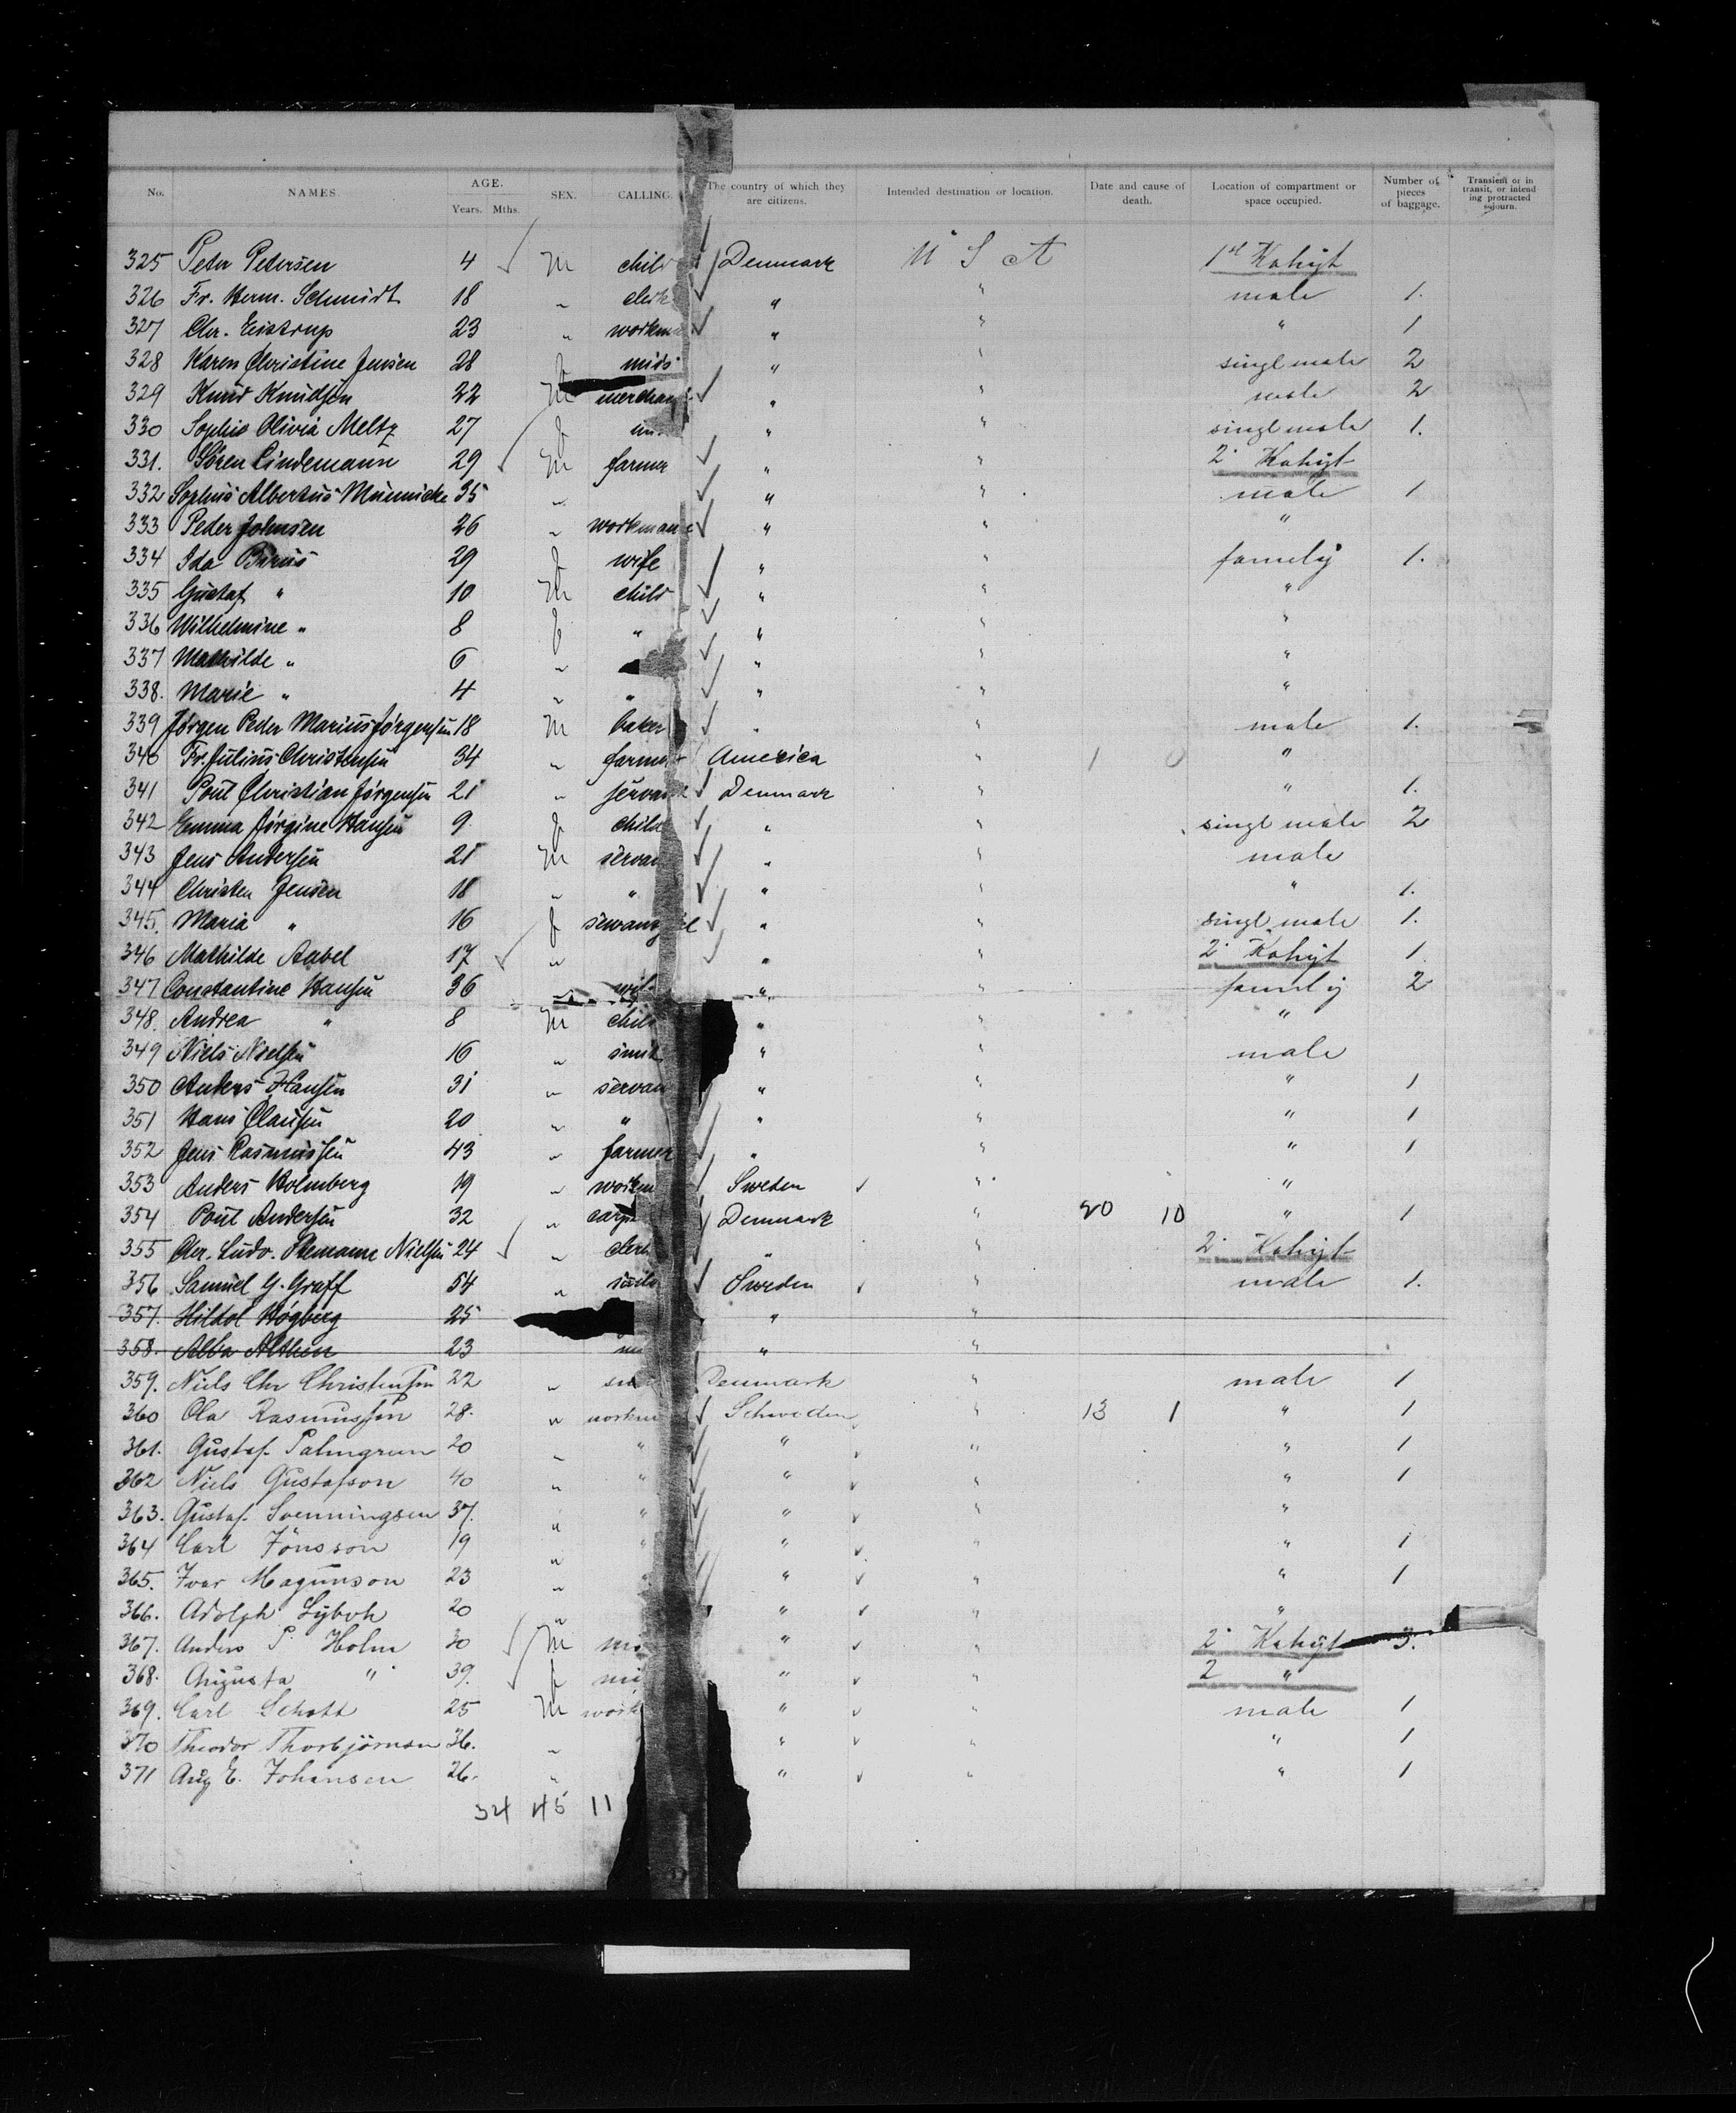 No. NAMES. AGE. Years. Mths. SEX. CALLING. The country of which they are citizens. Intended destination or location. Date and cause of death. Location of compartment or space occupied. Number of pieces of baggage. Transient or in transit, or intending protracted sojourn.
325 Peter Petersen 4 M child Denmark U S A 1st Kahyt
326 Fr. Herm. Schmidt 18 " clerk " " male 1.
327 Chr. Eistrup 23 " workm " " " 1
328 Karen Christine Jensen 28 f miss " " singl male 2
329 Knud Knudsen 22 M merchan " " male 2
330 Sophie Olivia Meltz 27 f " " singl male 1.
331. Sören Lindemann 29 M farmer " " 2. Kahyt
332 Sophus Albertus Münnicke 35 " " " male 1
333 Peder Johnsen 26 " workman " " "
334 Ida 29 f wife " " family 1.
335 Gustaf " 10 M child " " "
336 Wilhelmine " 8 f " " " "
337 Mathilde " 6 " " " "
338. Marie " 4 " " " " "
339 Jørgen Peder Marius Jørgensen 18 M baker " " male 1.
340 Fr. Julius Christensen 34 " farmer America " 1 0 "
341 Poul Christian Jørgensen 21 " servan Denmark " " 1.
342 Emma Jørgine Hansen 9 f child " " singl male 2
343 Jens Andersen 21 M servan " " male
344 Christen Jensen 18 " " " " " 1.
345. Maria " 16 f " " singl male 1.
346 Mathilde Aabel 17 " " " 2. Kahyt 1.
347 Constantine Hansen 36 " wif " " family 2
348. Andrea " 8 M chil " " "
349 Niels Nielsen 16 " smit " " male
350 Anders Hansen 31 " servan " " " 1
351 Hans Clausen 20 " " " " " 1
352 Jens Rasmussen 43 " farmer " " " 1
353 Anders Holmberg 19 " workm Sweden " "
354 Poul Andersen 32 " carp Denmark " 20 10 " 1
355 Chr. Ludv. Nielsen 24 " clerk " " 2. Kahyt
356 Samuel G. Graff 54 " Sweden " male 1.
357. Hildol Högberg 25 " "
358. Alba Althin 23 " "
359. Niels Chr Christensen 22 " Denmark " male 1
360 Ola Rasmussen 28. " workm Schweden " 13 1 " 1
361. Gustaf Palmgren 20 " " " " " 1
362 Niels Gustafson 40 " " " " " 1
363. Gustaf Svenningsen 37. " " " " "
364 Carl Jönsson 19 " " " " " 1
365. Ivar Magnuson 23 " " " " " 1
366. Adolph 20 " " " "
367. Anders P. Holm 30 M " " 2. Kahyt 3.
368. Augusta " 39. f " " 2 "
369. Carl Schott 25 M work " " male 1
370 Theodor Thorbjörnsen 36. " " " " 1
371 Aug E. Johansen 26. " " " " 1
34 45 11